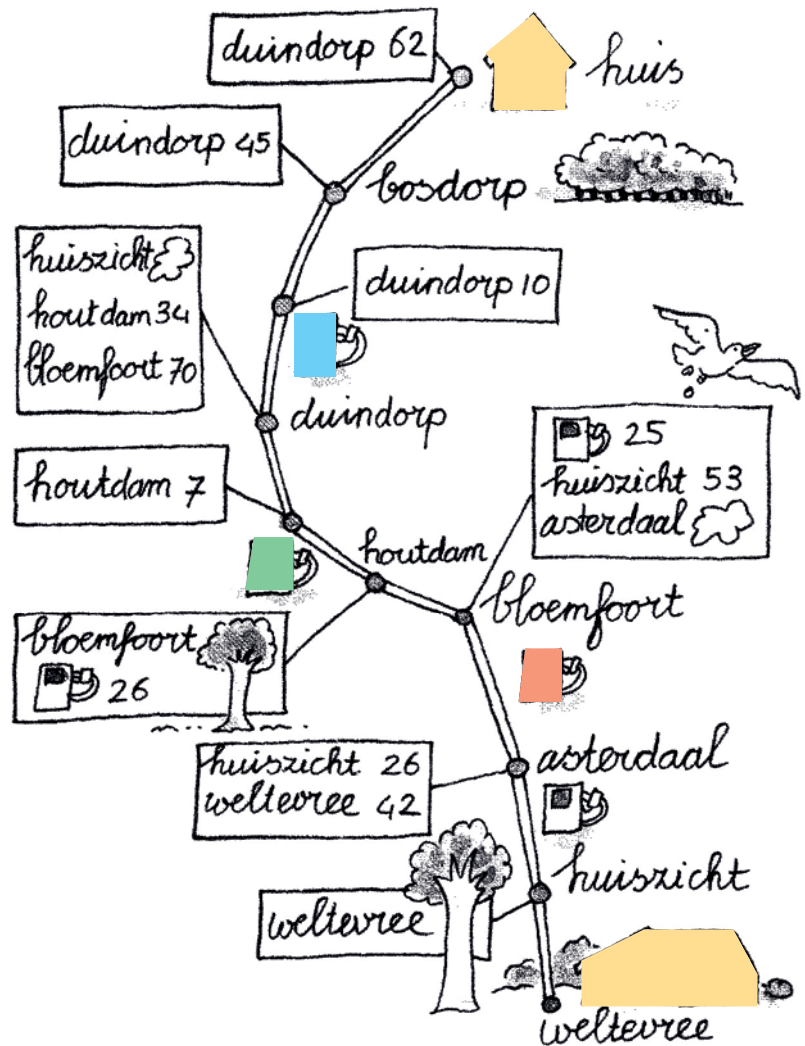 duindorp 62
huis
duindorp 45
bosdorp
huiszicht
houtdam 34
bloemfoort 70
duindorp 10
duindorp
25
huiszicht 53
asterdaal
houtdam 7
houtdam
bloemfoort
bloemfoort
26
huiszicht 26
weltevree 42
asterdaal
huiszicht
weltevree
weltevree